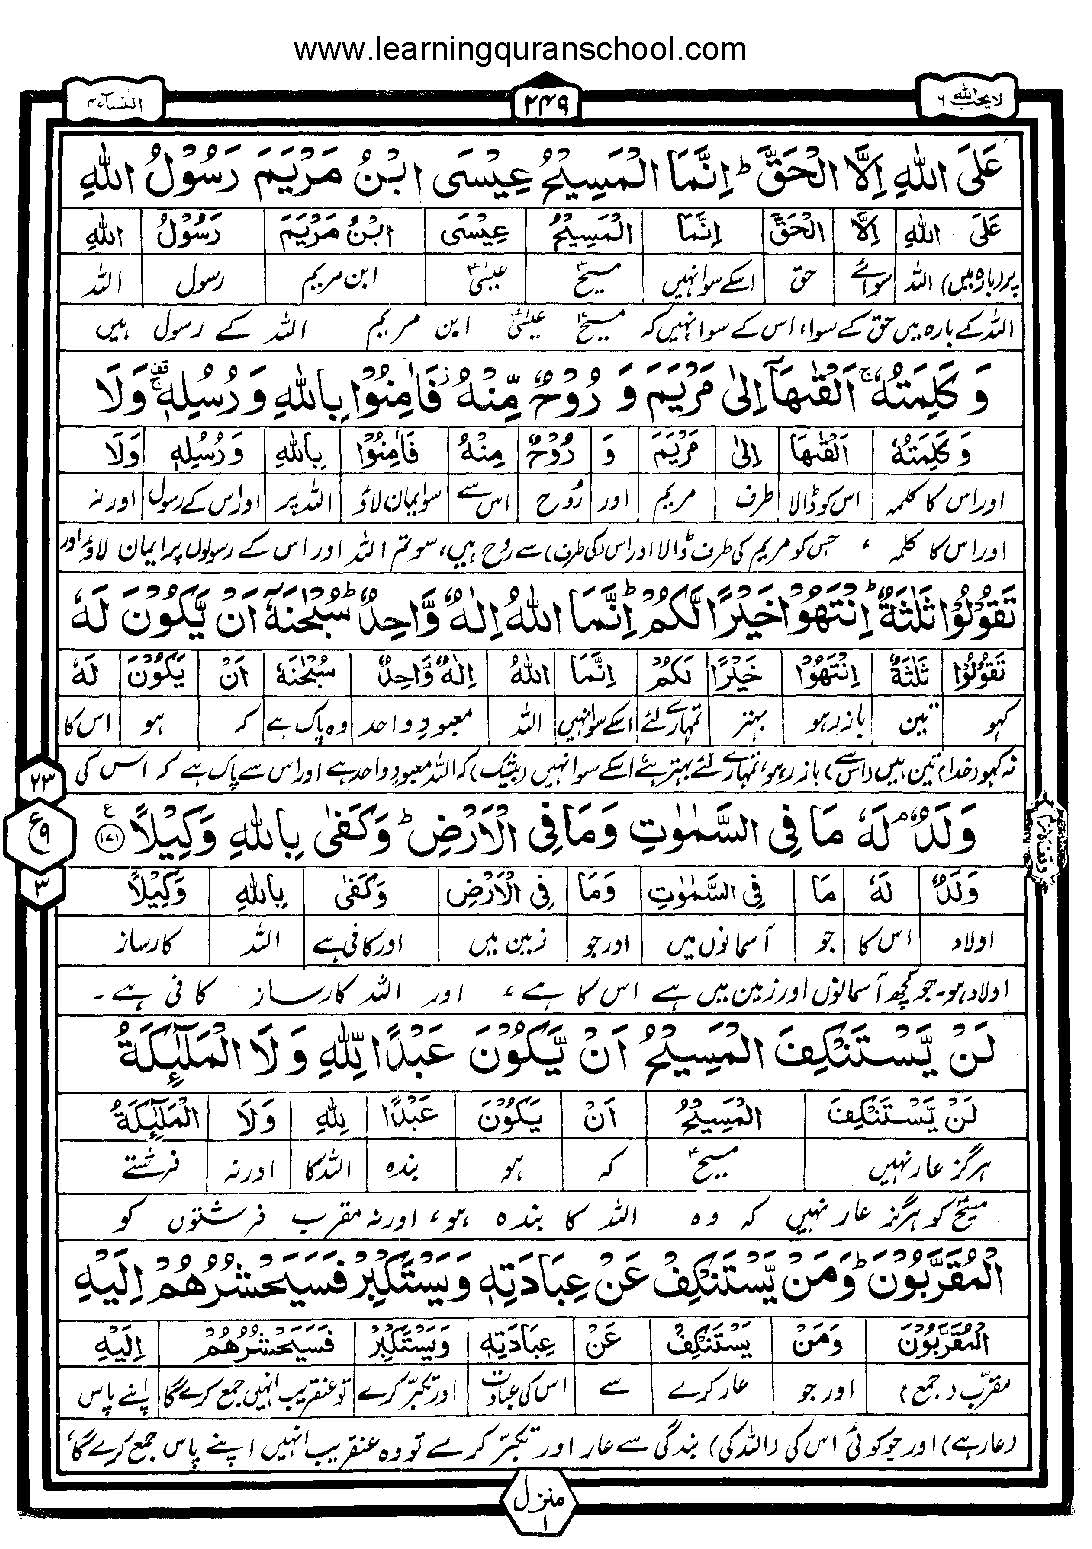 www.learningquranschool.com
لا یحب اللہ ۶ ۲۴۹ النسآء ۴
عَلَى اللّٰهِ اِلَّا الْحَقَّ ؕ اِنَّمَا الْمَسِيْحُ عِيْسَى ابْنُ مَرْيَمَ رَسُوْلُ اللّٰهِ
عَلَى اللّٰهِ اِلَّا الْحَقَّ اِنَّمَا الْمَسِيْحُ عِيْسَى ابْنُ مَرْيَمَ رَسُوْلُ اللّٰهِ
پر (بارہ میں) اللہ سوائے حق اسکے سوا نہیں مسیحؑ عیسیٰؑ ابن مریم رسول اللہ
اللہ کے بارہ میں حق کے سوا، اس کے سوا نہیں کہ مسیحؑ عیسیٰؑ ابن مریم اللہ کے رسول ہیں
وَ كَلِمَتُهٗ ۚ اَلْقٰىهَاۤ اِلٰى مَرْيَمَ وَ رُوْحٌ مِّنْهُ ۫ فَاٰمِنُوْا بِاللّٰهِ وَ رُسُلِهٖ ۚ۫ وَلَا
وَ كَلِمَتُهٗ اَلْقٰىهَا اِلٰى مَرْيَمَ وَ رُوْحٌ مِنْهُ فَاٰمِنُوْا بِاللّٰهِ وَ رُسُلِهٖ وَلَا
اور اس کا کلمہ اس کو ڈالا طرف مریم اور رُوح اس سے سو ایمان لاؤ اللہ پر اور اس کے رسول اور نہ
اور اس کا کلمہ ، جس کو مریم کی طرف ڈالا اور اس (کی طرف) سے رُوح ہیں، سو تم اللہ اور اس کے رسولوں پر ایمان لاؤ، اور
تَقُوْلُوْا ثَلٰثَةٌ ؕ اِنْتَهُوْا خَيْرًا لَّكُمْ ؕ اِنَّمَا اللّٰهُ اِلٰهٌ وَّاحِدٌ ؕ سُبْحٰنَهٗۤ اَنْ يَّكُوْنَ لَهٗ
تَقُوْلُوْا ثَلٰثَةٌ اِنْتَهُوْا خَيْرًا لَكُمْ اِنَّمَا اللّٰهُ اِلٰهٌ وَّاحِدٌ سُبْحٰنَهٗ اَنْ يَكُوْنَ لَهٗ
کہو تین باز رہو بہتر تمہارے لئے اسکے سوا نہیں اللہ معبودِ واحد وہ پاک ہے کہ ہو اس کا
نہ کہو (خدا) تین ہیں (اس سے) باز رہو، تمہارے لئے بہتر ہے اسکے سوا نہیں (بیشک) کہ اللہ معبود واحد ہے اور اس سے پاک ہے کہ اس کی
۲۳
ع ۹
۳
وَلَدٌ ۘ لَهٗ مَا فِى السَّمٰوٰتِ وَمَا فِى الْاَرْضِ ؕ وَ كَفٰى بِاللّٰهِ وَكِيْلًا ۧ (۱۷۱)
وَلَدٌ لَهٗ مَا فِى السَّمٰوٰتِ وَمَا فِى الْاَرْضِ وَ كَفٰى بِاللّٰهِ وَكِيْلًا
اولاد اس کا جو آسمانوں میں اور جو زمین میں اور کافی ہے اللہ کارساز
اولاد ہو۔ جو کچھ آسمانوں اور زمین میں ہے اس کا ہے، اور اللہ کارساز کافی ہے۔
لَنْ يَّسْتَنْكِفَ الْمَسِيْحُ اَنْ يَّكُوْنَ عَبْدًا لِّلّٰهِ وَ لَا الْمَلٰٓئِكَةُ
لَنْ يَّسْتَنْكِفَ الْمَسِيْحُ اَنْ يَكُوْنَ عَبْدًا لِلّٰهِ وَلَا الْمَلٰٓئِكَةُ
ہرگز عار نہیں مسیحؑ کہ ہو بندہ اللہ کا اور نہ فرشتے
مسیحؑ کو ہرگز عار نہیں کہ وہ اللہ کا بندہ ہو، اور نہ مقرب فرشتوں کو
الْمُقَرَّبُوْنَ ؕ وَمَنْ يَّسْتَنْكِفْ عَنْ عِبَادَتِهٖ وَيَسْتَكْبِرْ فَسَيَحْشُرُهُمْ اِلَيْهِ
الْمُقَرَّبُوْنَ وَمَنْ يَسْتَنْكِفْ عَنْ عِبَادَتِهٖ وَيَسْتَكْبِرْ فَسَيَحْشُرُهُمْ اِلَيْهِ
مقرّب (جمع) اور جو عار کرے سے اس کی عبادت اور تکبّر کرے تو عنقریب انہیں جمع کرے گا اپنے پاس
(عار ہے) اور جو کوئی اس کی (اللہ کی) بندگی سے عار اور تکبّر کرے تو وہ عنقریب انہیں اپنے پاس جمع کرے گا،
منزل ۱